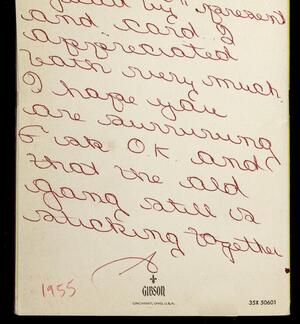 present
and card. I
appreciated
both very much.
I hope you
are surviving
Fisk O.K. and
that the old
gang still is
sticking together
1955
GIBSON
CINCINNATI, OHIO, U.S.A.
35X 50601